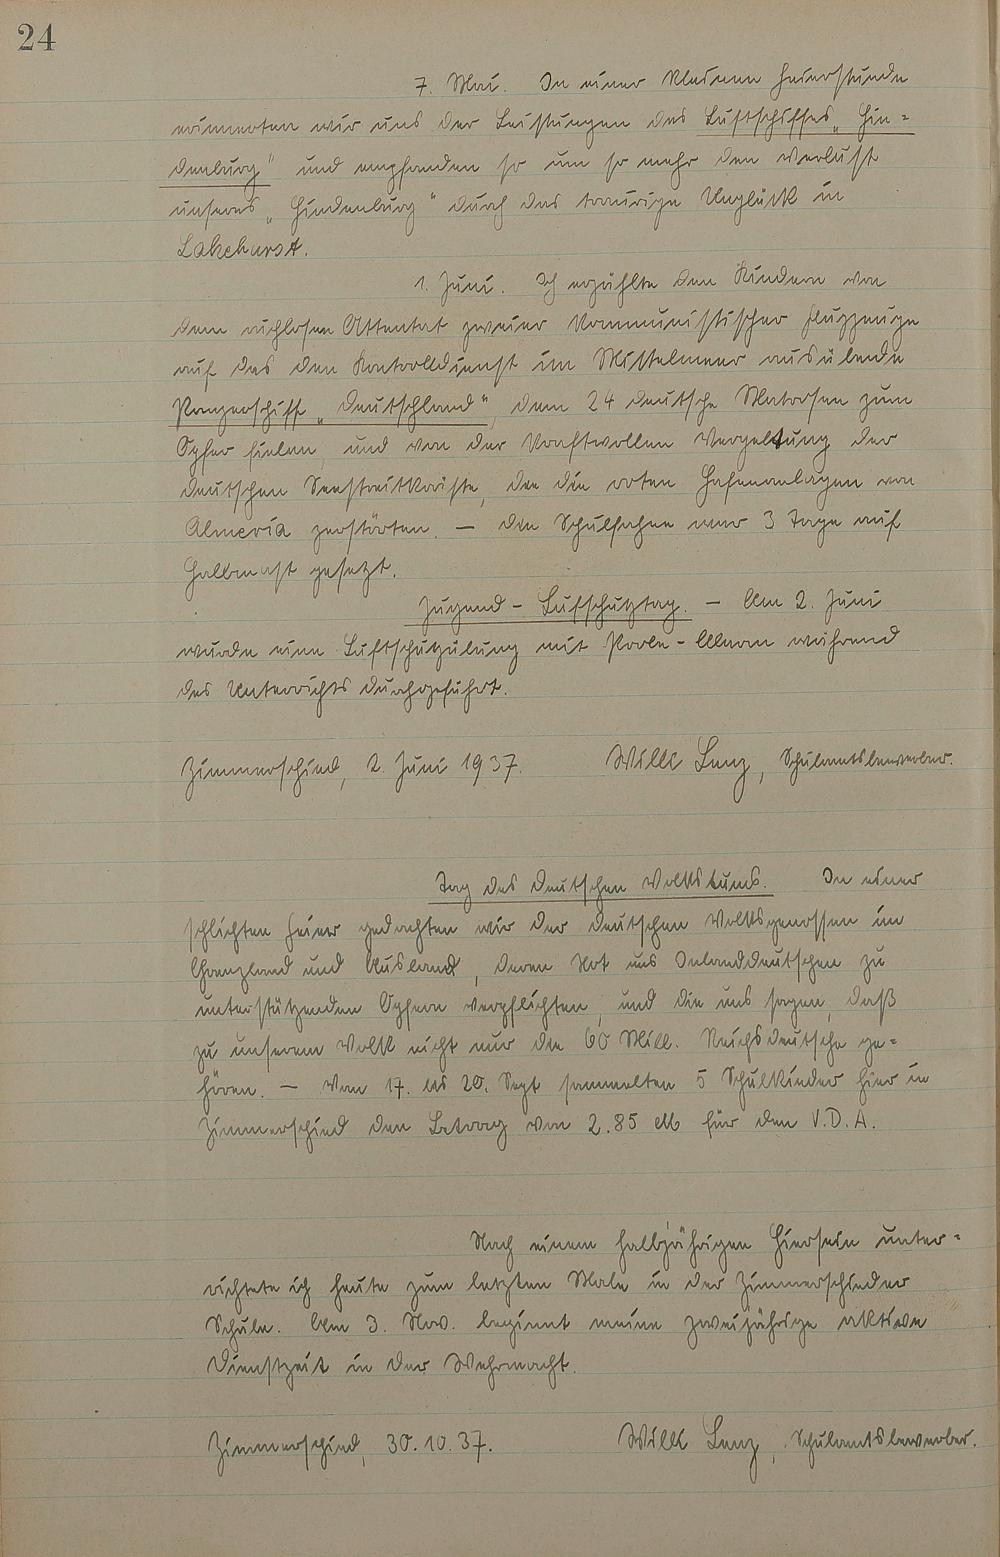 24
7. Mai. In einer kleinen Feierstunde
erinnerten wir uns der Leistungen des Luftschiffes „Hin=
denburg" und empfanden so um so mehr den Verlust
unseres „Hindenburg" durch das traurige Unglück in
Lakehurst.
1. Juni. Ich erzählte den Kindern von
dem ruchlosen Attentat zweier kommunistischer Flugzeuge
auf das den Kontrolldienst im Mittelmeer ausübende
Panzerschiff „Deutschland", dem 24 deutsche Matrosen zum
Opfer fielen, und von der kraftvollen Vergeltung der
deutschen Seestreitkräfte, die die roten Hafenanlagen von
Almeria zerstörten. — Die Schulfahne war 3 Tage auf
Halbmast gesetzt.
Jugend - Luftschutztag. — Am 2. Juni
wurde eine Luftschutzübung mit Probe-Alarm während
des Unterrichts durchgeführt.
Zimmerschied, 2. Juni 1937. Willi Lenz, Schulamtsbewerber.
Tag des deutschen Volkstums. In einer
schlichten Feier gedachten wir der deutschen Volksgenossen im
Grenzland und Ausland, deren Not uns Inlanddeutschen zu
unterstützenden Opfern verpflichten, und die uns sagen, daß
zu unserem Volk nicht nur die 60 Mill. Reichsdeutsche ge=
hören. — Vom 17. bis 20. Sept sammelten 5 Schulkinder hier in
Zimmerschied den Betrag von 2.85 M für den V.D.A.
Nach einem halbjährigen Hiersein unter=
richtete ich heute zum letzten Male in der Zimmerschieder
Schule. Am 3. Nov. beginnt meine zweijährige aktive
Dienstzeit in der Wehrmacht.
Zimmerschied, 30.10.37. Willi Lenz, Schulamtsbewerber.